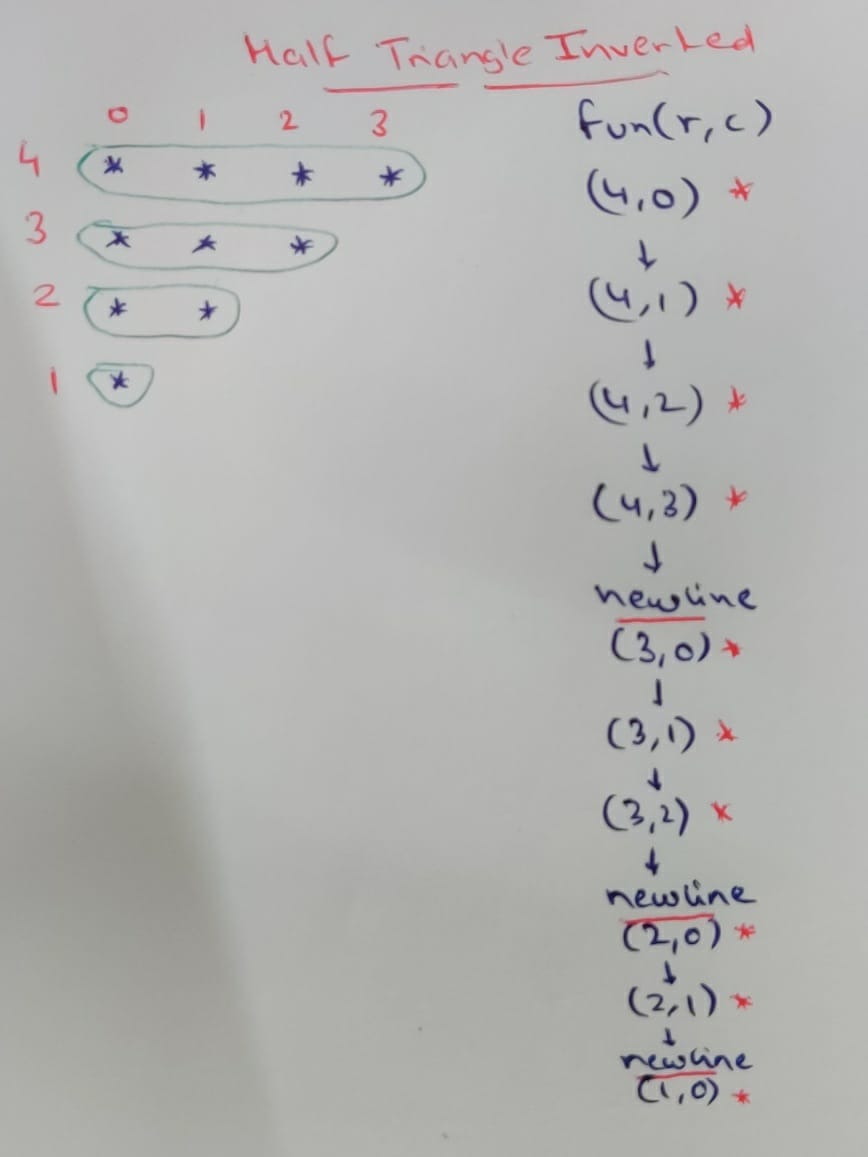 Half Triangle Inverted
0 1 2 3
4 * * * *
3 * * *
2 * *
1 *
fun(r, c)
(4,0) *
↓
(4,1) *
↓
(4,2) *
↓
(4,3) *
↓
newline
(3,0) *
↓
(3,1) *
↓
(3,2) *
↓
newline
(2,0) *
↓
(2,1) *
↓
newline
(1,0) *